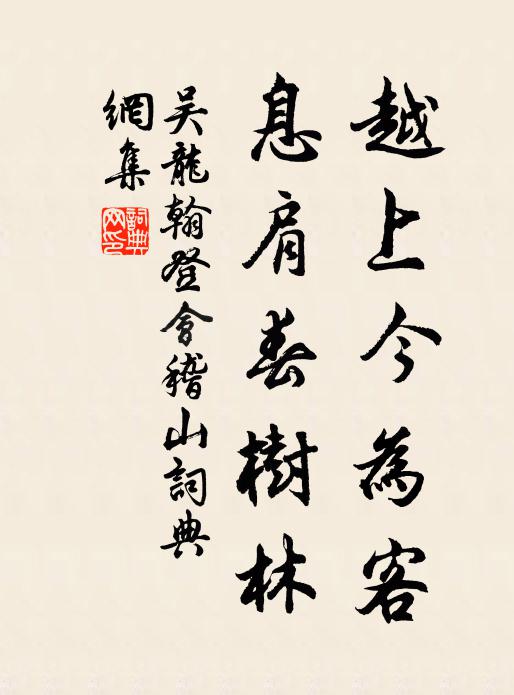 越上今為客
息肩春樹林
吳龍翰登會稽山詞典
網集
詞典
网印